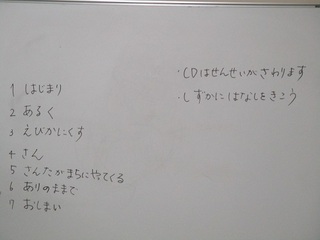 1 はじまり
2 あるく
3 えびかにくす
4 さん
5 さんたがまちにやてくる
6 ありのままで
7 おしまい
・CDはせんせいがさわります
・しずかにはなしをきこう